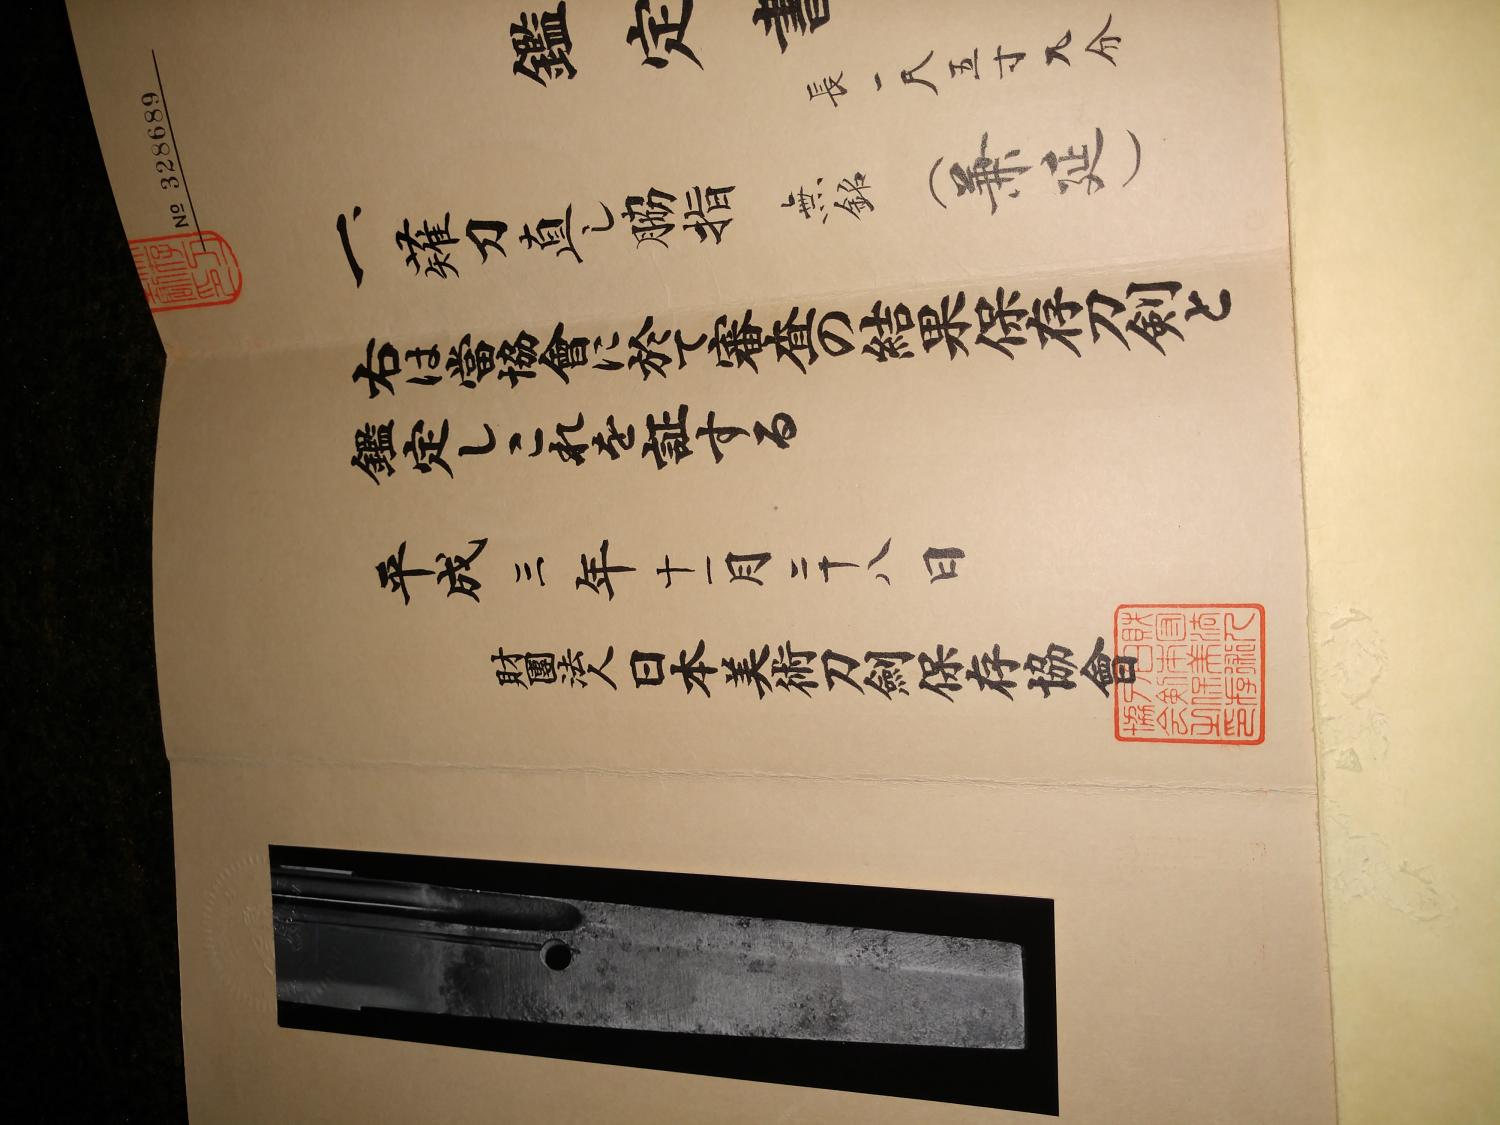 No 328689
鑑定書
一、薙刀直し脇指 無銘(兼延)
長一尺五寸九分
右は當協會に於て審査の結果保存刀剣と
鑑定しこれを証する
平成三年十一月二十八日
財團法人日本美術刀劍保存協會